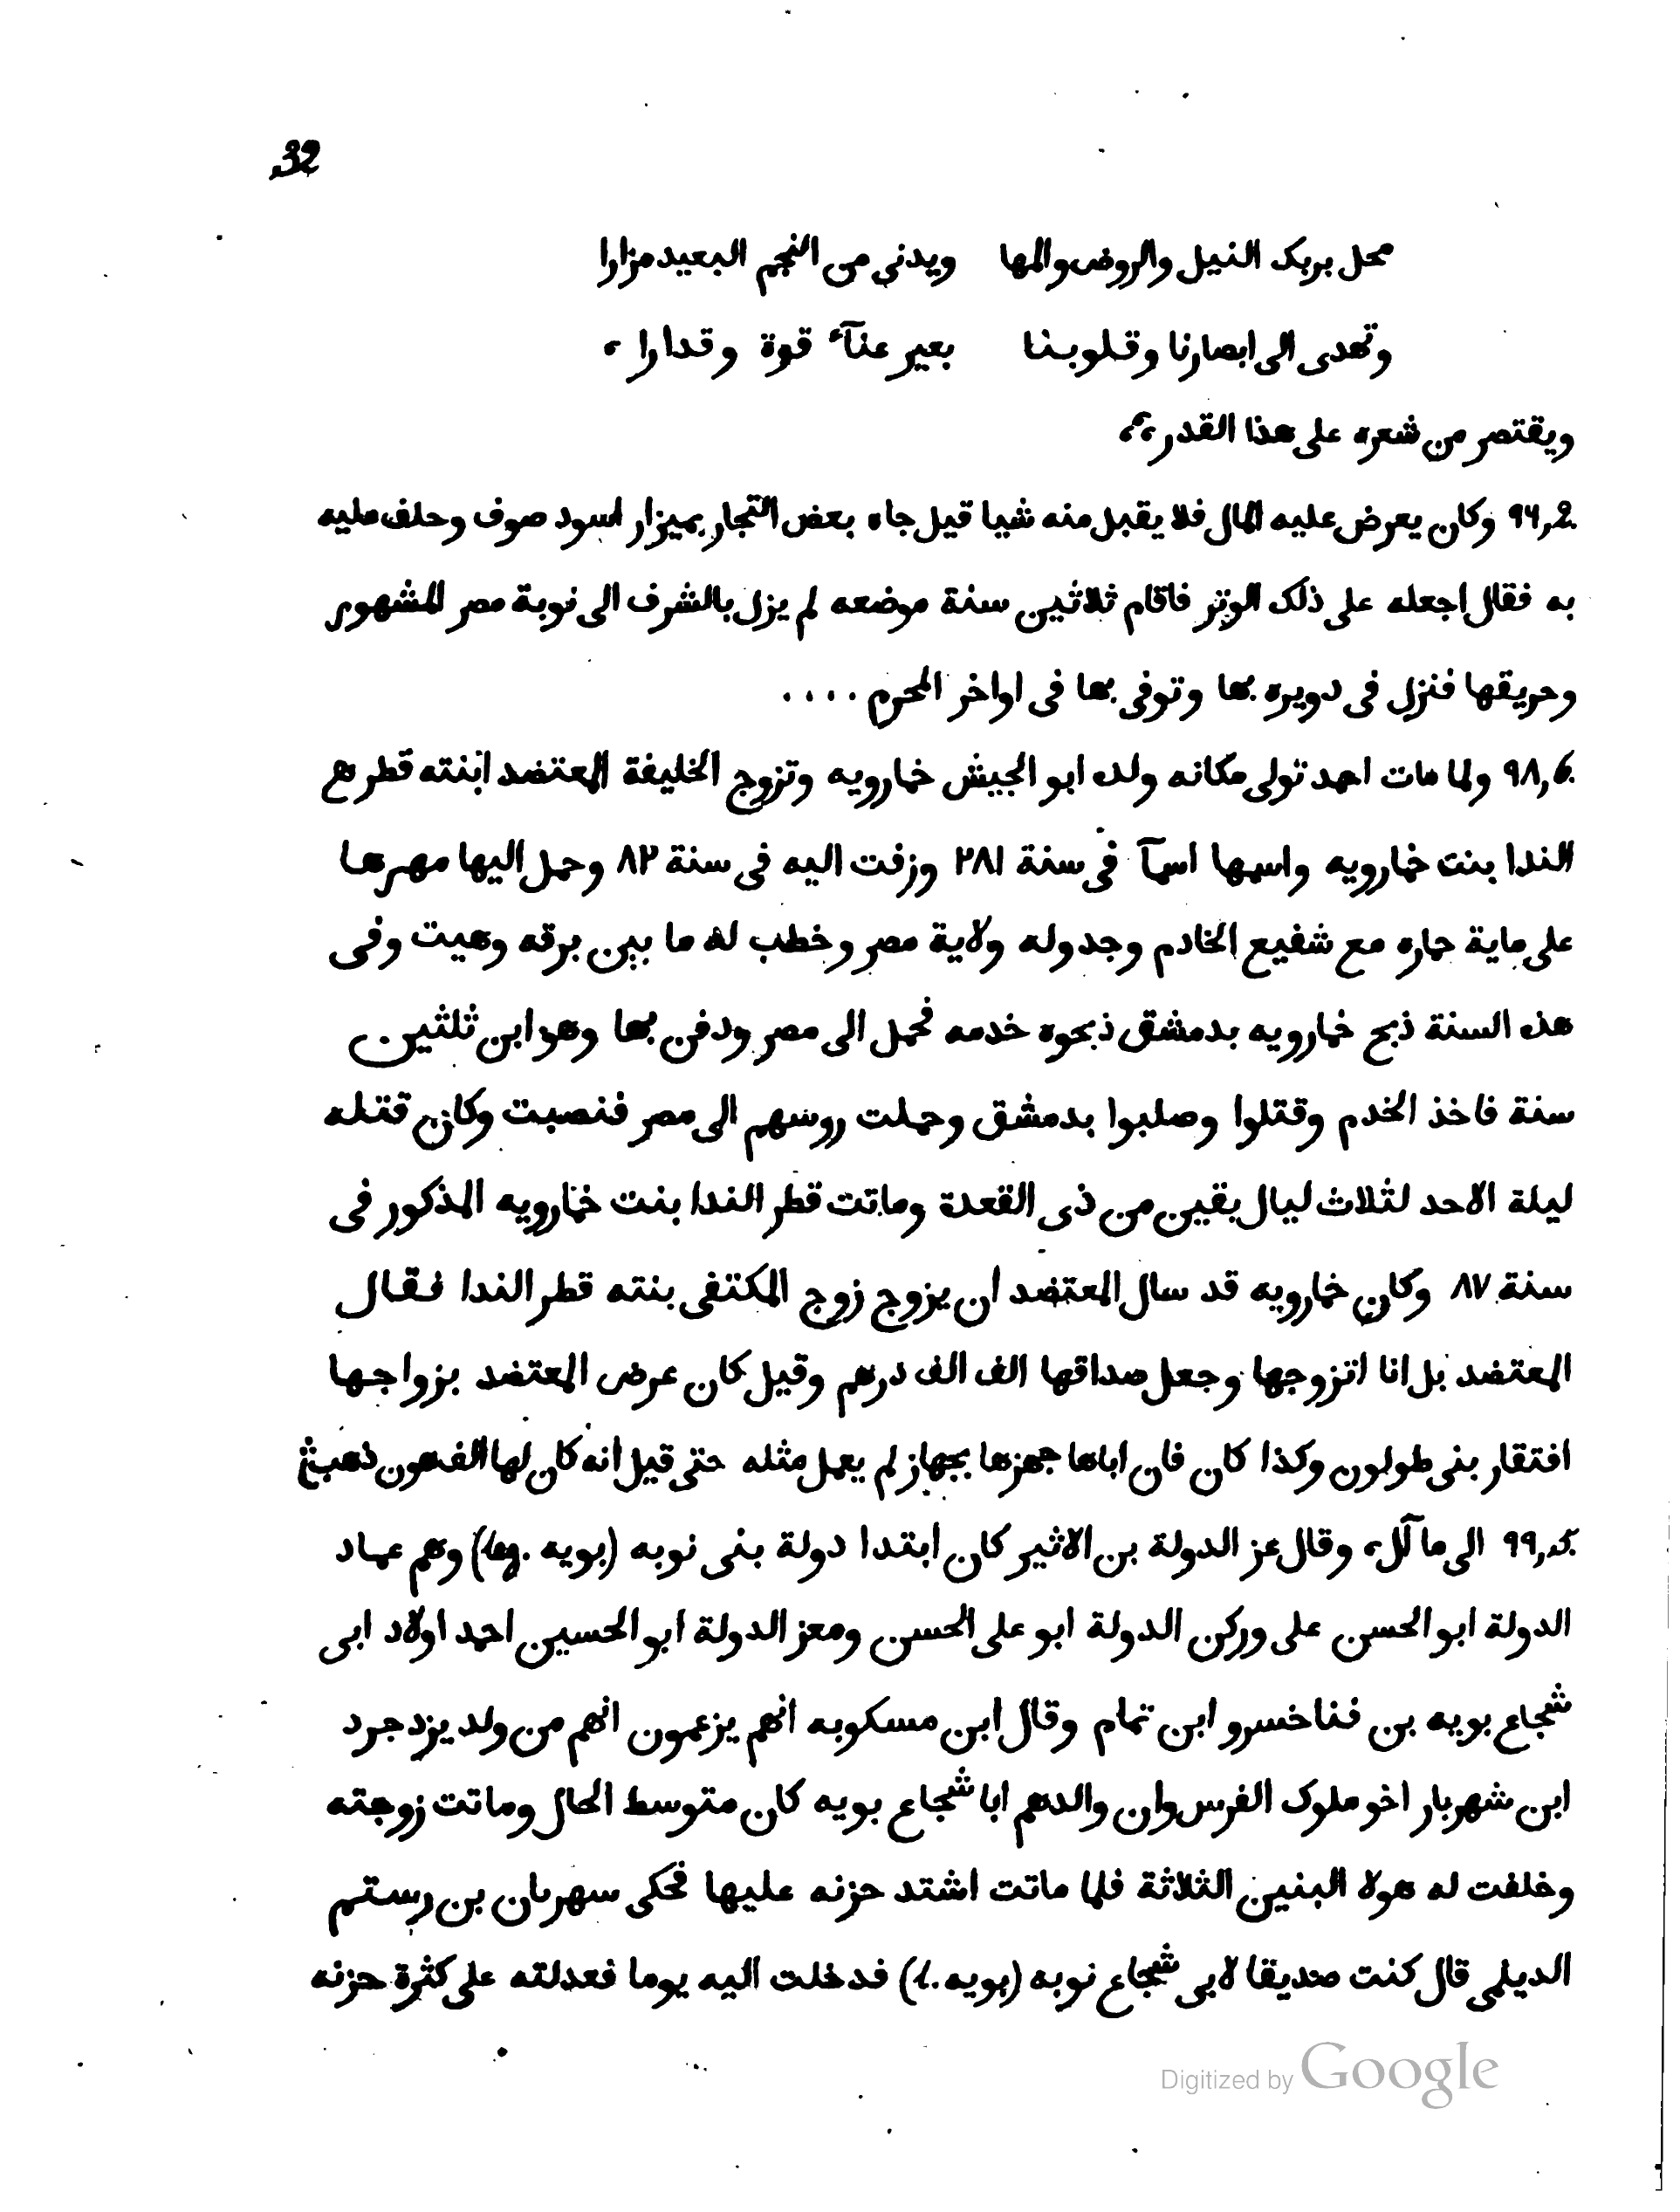 32
محل بربك النيل والروض والمها ويدنى من النجم البعيد مزارا
وتهدى الى ابصارنا وقلوبنا بعير عنآء قوة وقدارا ،
ويقتصر من شعره على هذا القدر ،،
٩٤,2. وكان يعرض عليه المال فلا يقبل منه شيا قيل جاه بعض التجار بميزار اسود صوف وحلف عليه
به فقال اجعله على ذلك الوتر فاقام ثلاثين سنة موضعه لم يزل بالشرف الى نوبة مصر المشهور
وحريقها فنزل فى دويره بها وتوفى بها فى اواخر المحرم ....
٩٨,6. ولما مات احمد تولى مكانه ولده ابو الجيش خمارويه وتزوج الخليفة المعتضد ابنته قطر
الندا بنت خمارويه واسمها اسمآ فى سنة ٢٨١ وزفت اليه فى سنة ٨٢ وحمل اليها مهرها
على ماية حماره مع شفيع الخادم وجدوله ولاية مصر وخطب له ما بين برقه وهيت وفى
هذه السنة ذبح خمارويه بدمشق ذبحوه خدمه فحمل الى مصر ودفن بها وهو ابن ثلثين
سنة فاخذ الخدم وقتلوا وصلبوا بدمشق وحملت روسهم الى مصر فنصبت وكان قتله
ليلة الاحد لثلاث ليال بقين من ذى القعدة وماتت قطر الندا بنت خمارويه المذكور فى
سنة ٨٧ وكان خمارويه قد سال المعتضد ان يزوج زوج المكتفى بنته قطر الندا فقال
المعتضد بل انا اتزوجها وجعل صداقها الف الف درهم وقيل كان عرض المعتضد بزواجها
افتقار بنى طولون وكذا كان فان اباها جهزها بجهاز لم يعمل مثله حتى قيل انه كان لها الف هون ذهب
٩٩,5. الى مآل ، وقال عز الدولة بن الاثير كان ابتدا دولة بنى نوبه (بويه .leg) وهم عماد
الدولة ابو الحسن على وركن الدولة ابو على الحسن ومعز الدولة ابو الحسين احمد اولاد ابى
شجاع بويه بن فناخسرو ابن تمام وقال ابن مسكوبه انهم يزعمون انهم من ولد يزدجرد
ابن شهربار اخو ملوك الفرس وان والدهم ابا شجاع بويه كان متوسط الحال وماتت زوجته
وخلفت له هولا البنين الثلاثة فلما ماتت اشتد حزنه عليها فحكى سهربان بن رستم
الديلمى قال كنت صديقا لابى شجاع نوبه (بويه .l) فدخلت اليه يوما فعدلته على كثرة حزنه
Digitized by Google